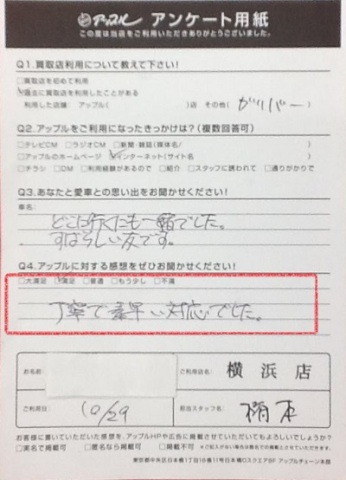 アップル アンケート用紙
この度は当店をご利用いただきありがとうございました。
Q1.買取店利用について教えて下さい!
□買取店を初めて利用
☑過去に買取店を利用したことがある
利用した店舗: アップル( )店 その他( ガリバー )
Q2.アップルをご利用になったきっかけは?(複数回答可)
□テレビCM □ラジオCM □新聞・雑誌(媒体名: )
□アップルのホームページ ☑インターネット(サイト名 )
□チラシ □DM □利用経験があるので □紹介 □スタッフに誘われて □通りがかりで
Q3.あなたと愛車との思い出をお聞かせください!
車名:
どこに行くにも一緒でした。
すばらしい友です。
Q4.アップルに対する感想をぜひお聞かせください!
□大満足 ☑満足 □普通 □もう少し □不満
丁寧で素早い対応でした。
お名前
ご利用店名: 横浜店
ご利用日: 10/29
担当スタッフ名:
お客様に書いていただいた感想を、アップルHPや広告に掲載させていただいてもよろしいでしょうか?
□実名で掲載可 □匿名なら掲載可 □掲載不可